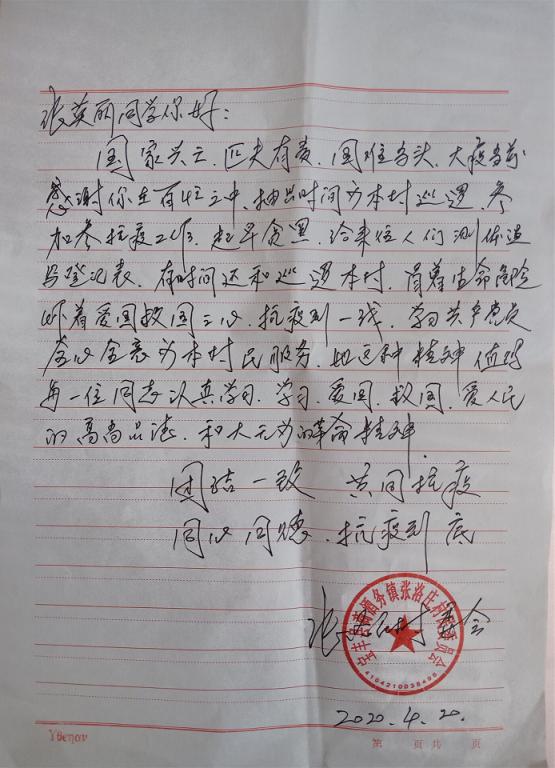 张英丽同学你好：
国家兴亡、匹夫有责、国难当头、大疫当前
感谢你在百忙之中、抽出时间为本村巡逻、参
加参抗疫工作、起早贪黑、给来往人们测体温
写登记表、有时间还和巡逻本村、冒着生命危险
怀着爱国救国之心、抗疫到一线、学习共产党员
全心全意为本村民服务、她这种精神值得
每一位同志认真学习、学习、爱国、救国、爱人民
的高尚品德、和大无力的革命精神.
团结一致 共同抗疫
同心同德、抗疫到底
张洛庄村委会
宝丰县商酒务镇张洛庄村民委员会
4104210038498
2020.4.20.
Yθεηαν
第 页共 页